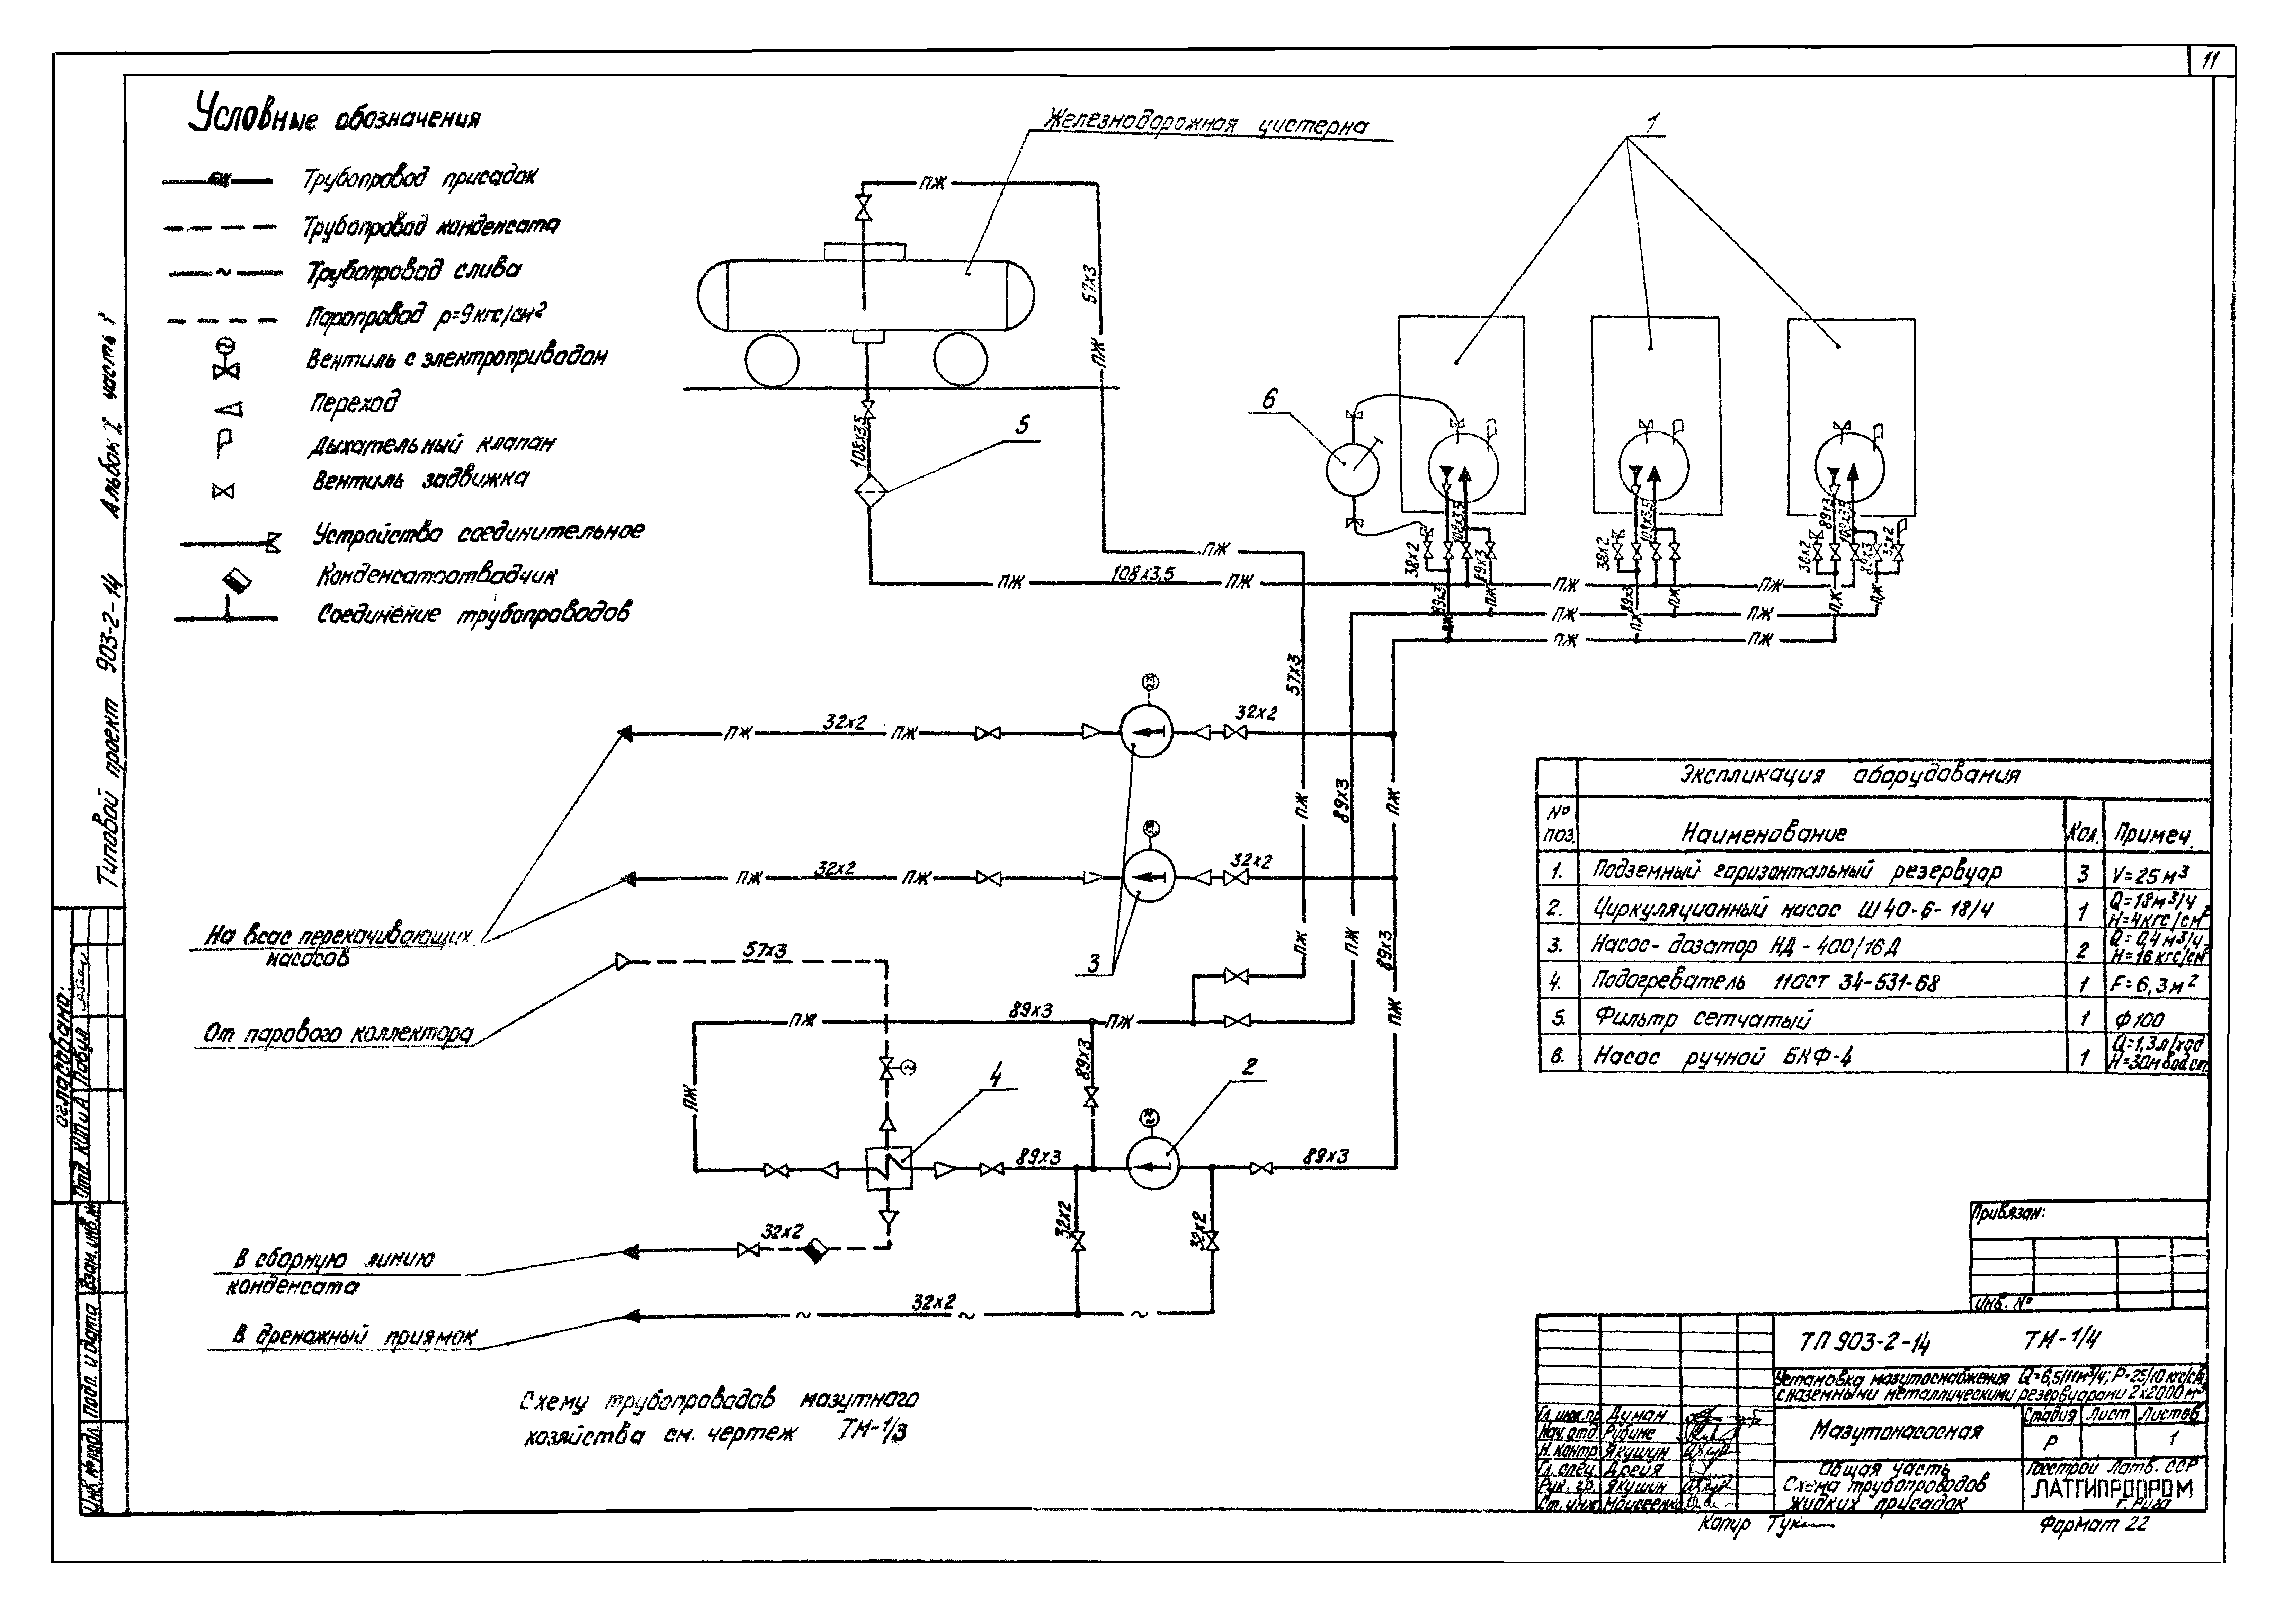 11
Условные обозначения
ПЖ
Трубопровод присадок
Трубопровод конденсата
~
Трубопровод слива
Паропровод р=9кгс/см²
Вентиль с электроприводом
Переход
Дыхательный клапан
Вентиль задвижка
Устройство соединительное
Конденсатоотводчик
Соединение трубопроводов
Железнодорожная цистерна
ПЖ
57х3
ПЖ
108х3,5
5
1
6
38х2
108х3,5
89х3
38х2
108х3,5
89х3
108х3,5
38х2
89х3
32х2
ПЖ
ПЖ 108х3,5 ПЖ
ПЖ ПЖ
ПЖ ПЖ
ПЖ ПЖ
89х3
ПЖ
ПЖ
89х3
ПЖ
ПЖ
ПЖ
57х3
ПЖ 32х2 ПЖ
32х2
ПЖ 32х2 ПЖ
32х2
3
ПЖ
89х3
ПЖ
ПЖ
89х3
ПЖ
На всас перекачивающих
насосов
57х3
От парового коллектора
ПЖ 89х3 ПЖ
ПЖ
89х3
4
2
89х3
89х3
32х2
32х2
32х2
В сборную линию
конденсата
32х2
~ ~ ~
В дренажный приямок
Схему трубопроводов мазутного
хозяйства см. чертеж ТМ-1/3
Экспликация оборудования
№ поз. Наименование Кол. Примеч.
1. Подземный горизонтальный резервуар 3 V=25м³
2. Циркуляционный насос Ш40-6-18/4 1 Q=18м³/ч H=4кгс/см²
3. Насос-дозатор НД-400/16Д 2 Q=0,4м³/ч H=16кгс/см²
4. Подогреватель 11ОСТ 34-531-68 1 F=6,3м²
5. Фильтр сетчатый 1 Ф100
6. Насос ручной БКФ-4 1 Q=1,3л/ход H=30м вод ст.
Привязан:
Инв. №
ТП 903-2-14 ТМ-1/4
Установка мазутоснабжения Q=6,5/11м³/ч; Р=25/10 кгс/см²
с наземными металлическими резервуарами 2х2000м³
Мазутонасосная
Стадия Лист Листов
Р 1
Общая часть
Схема трубопроводов
жидких присадок
Госстрой Латв. ССР
ЛАТГИПРОПРОМ
г. Рига
Гл. инж. пр. Думан
Нач. отд. Рубинс
Н. контр Якушин
Гл. спец. Дрейя
Рук. гр. Якушин
Ст. инж Моисеенко
Копир Тук
Формат 22
Типовой проект 903-2-14 Альбом I часть 1
Согласовано:
Отд. КИПиА
Инв. № подл. Подп. и дата Взам. инв. №